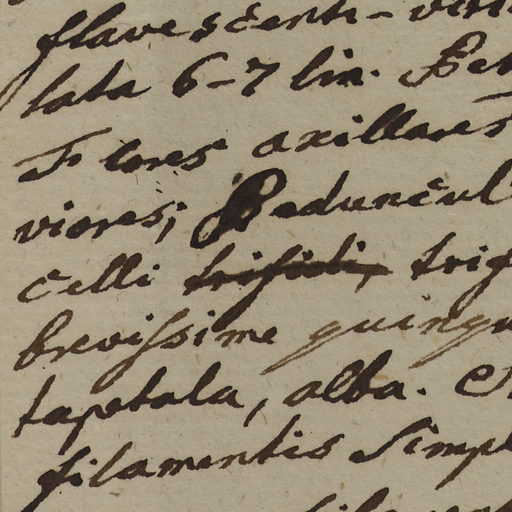 flavescenti-viri
lata 6-7 lin. Pet
Flores axillares
viores; Peduncul
celli trifidi, trif
brevissime quinqu
tapetala, alba.
filamentis simpl